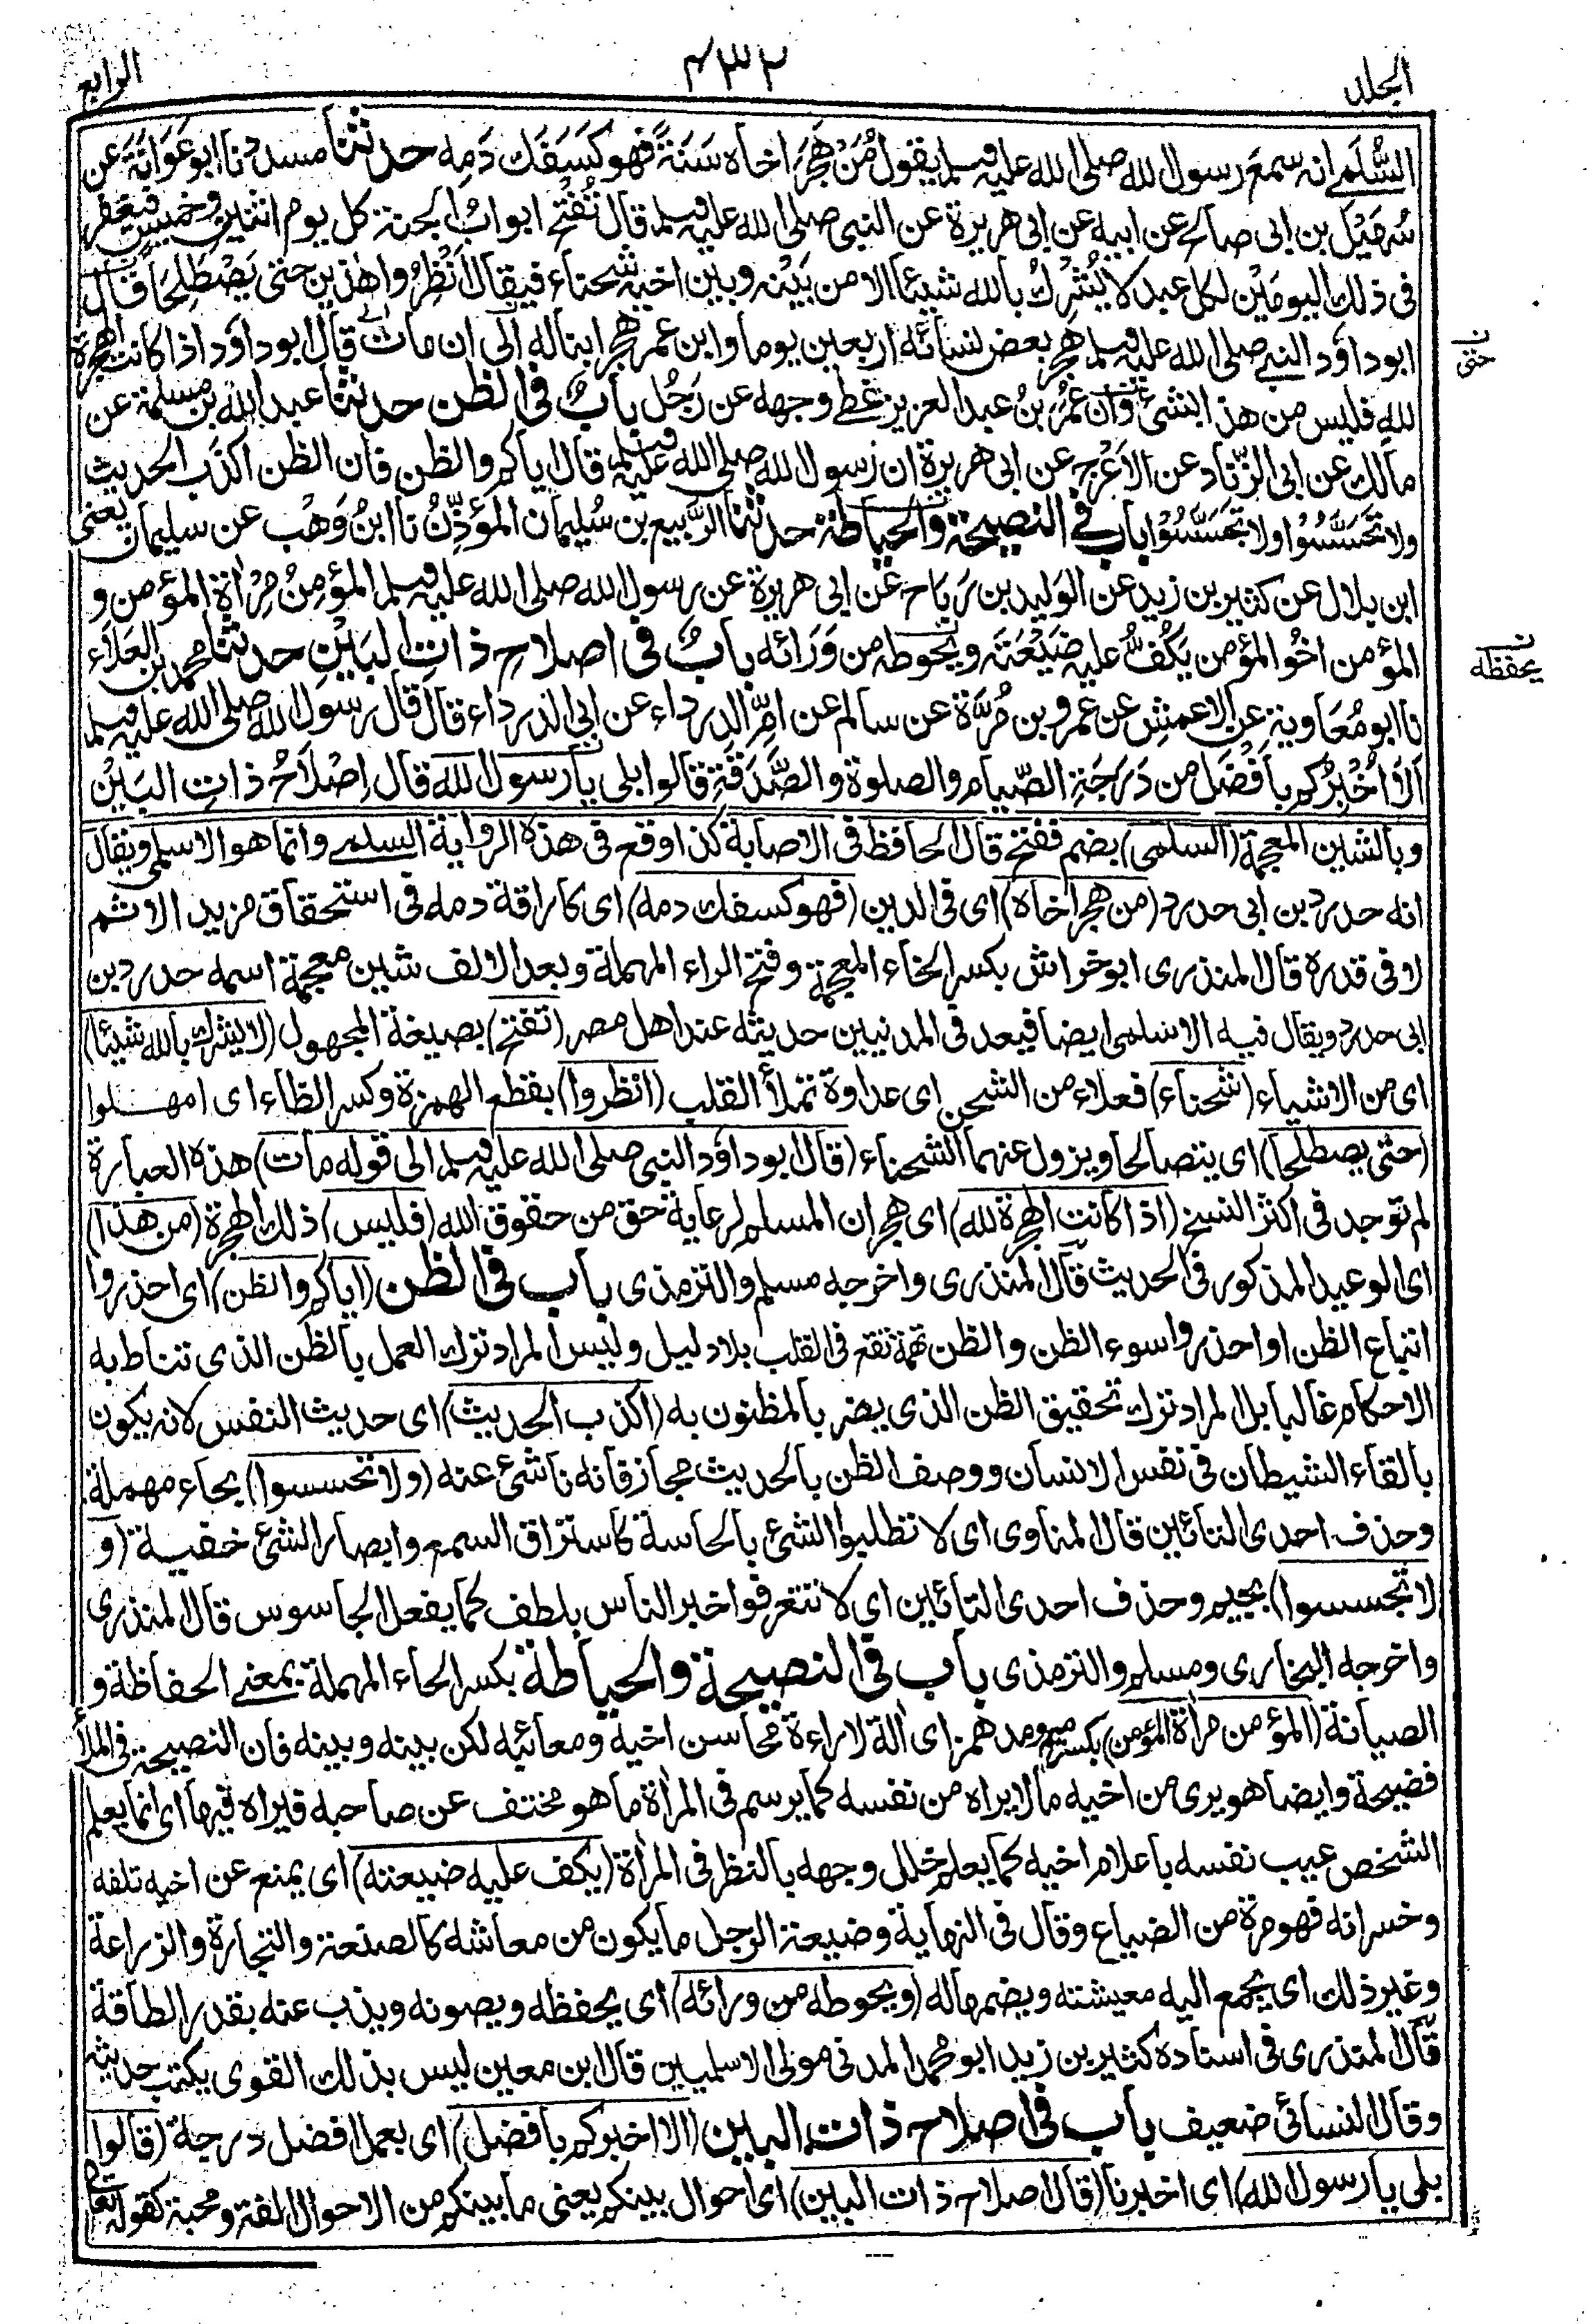 المجلد
٤٣٢
الرابع
السُّلَمي انه سمع رسول الله صلى الله عليه وسلم يقول مَنْ هَجَرَ اخاه سَنَةً فهو كَسَفْكِ دَمِه حدثنا مسدد نا ابو عَوَانَةَ عن
سُهَيْل بن ابى صالح عن ابيه عن ابى هريرة عن النبى صلى الله عليه وسلم قال تُفْتَحُ ابوابُ الجنة كل يوم اثنين وخميس فيغفر
فى ذلك اليومَيْن لكل عبد لا يُشْرِكُ بالله شيئا الا من بَيْنَه وبين اخيه شحناء فيقال اَنْظِرُوا هذين حتى يَصْطَلِحَا قال
ابو داؤد النبى صلى الله عليه وسلم هجر بعض نسائه اربعين يوما وابن عمر هجر ابنا له الى ان مات قال ابو داؤد اذا كانت الهجرة
لله فليس من هذا بشئ وان عُمَرَ بنُ عبد العزيز غطى وجهه عن رَجُل بابٌ فى الظن حدثنا عبد الله بن مسلمة عن
مالك عن ابى الزِّناد عن الاَعْرَج عن ابى هريرة ان رسول الله صلى الله عليه وسلم قال اياكم والظن فان الظن اكذب الحديث
ولا تَحَسَّسُوْا ولا تَجَسَّسُوْا باب فى النصيحة والحياطة حدثنا الرَّبيع بن سُليمان المؤذِّنُ نا ابنُ وَهْب عن سليمان يعنى
ابن بلال عن كثير بن زيد عن الوليد بن رَبَاح عن ابى هريرة عن رسول الله صلى الله عليه وسلم المؤمِنُ مِرْاٰةُ المؤمن و
المؤمن اخُو المؤمن يَكُفُّ عليه ضَيْعَتَه ويحوطه من وَرَائه بابٌ فى اصلاح ذات البَيْنِ حدثنا محمد بن العَلَاء
نا ابو مُعَاوية عن الاعمش عن عمرو بن مُرَّة عن سالم عن امِّ الدرداء عن ابى الدرداء قال قال رسول الله صلى الله عليه وسلم
اَلَا اُخْبِرُكم بِاَفْضَلَ من دَرَجَةِ الصِّيام والصلوة والصَّدَقَةِ قالوا بلى يا رسول الله قال اِصْلَاحُ ذاتِ البَيْنِ
ن
حتى
ن
يحفظه
وبالشين المعجمة (السلمى) بضم ففتح قال الحافظ فى الاصابة كذا وقع فى هذه الرواية السلمى وانما هو الاسلمى ويقال
انه حدرد بن ابى حدرد (من هجر اخاه) اى فى الدين (فهو كسفك دمه) اى كاراقة دمه فى استحقاق مزيد الاثم
لا فى قدره قال المنذرى ابو خراش بكسر الخاء المعجمة وفتح الراء المهملة وبعد الالف شين معجمة اسمه حدرد بن
ابى حدرد ويقال فيه الاسلمى ايضا فيعد فى المدنيين حديثه عند اهل مصر (تفتح) بصيغة المجهول (لا يشرك بالله شيئا)
اى من الاشياء (شحناء) فعلاء من الشحن اى عداوة تملأ القلب (انظروا) بقطع الهمزة وكسر الظاء اى امهلوا
(حتى يصطلحا) اى يتصالحا ويزول عنهما الشحناء (قال ابو داؤد النبى صلى الله عليه وسلم الى قوله مات) هذه العبارة
لم توجد فى اكثر النسخ (اذا كانت الهجرة لله) اى هجران المسلم لرعاية حق من حقوق الله (فليس) ذلك الهجرة (من هذا)
اى الوعيد المذكور فى الحديث قال المنذرى واخرجه مسلم والترمذى باب فى الظن (اياكم والظن) اى احذروا
اتباع الظن او احذروا سوء الظن والظن تهمة تقع فى القلب بلا دليل وليس المراد ترك العمل بالظن الذى تناط به
الاحكام غالبا بل المراد ترك تحقيق الظن الذى يضر بالمظنون به (اكذب الحديث) اى حديث النفس لانه يكون
بالقاء الشيطان فى نفس الانسان ووصف الظن بالحديث مجاز فانه ناشئ عنه (ولا تحسسوا) بحاء مهملة
وحذف احدى التائين قال المناوى اى لا تطلبوا الشئ بالحاسة كاستراق السمع وابصار الشئ خفية (و
لا تجسسوا) بجيم وحذف احدى التائين اى لا تتعرفوا خبر الناس بلطف كما يفعل الجاسوس قال المنذرى
واخرجه البخارى ومسلم والترمذى باب فى النصيحة والحياطة بكسر الحاء المهملة بمعنى الحفاظة و
الصيانة (المؤمن مرأة المؤمن) بكسر ميم ومد همز اى اٰلة لاراءة محاسن اخيه ومعائبه لكن بينه وبينه فان النصيحة فى الملأ
فضيحة وايضا هو يرى من اخيه ما لا يراه من نفسه كما يرسم فى المراٰة ما هو مختف عن صاحبه فيراه فيها اى انما يعلم
الشخص عيب نفسه باعلام اخيه كما يعلم خلل وجهه بالنظر فى المراٰة (يكف عليه ضيعته) اى يمنع عن اخيه تلفه
وخسرانه فهو مرة من الضياع وقال فى النهاية وضيعة الرجل ما يكون من معاشه كالصنعة والتجارة والزراعة
وغير ذلك اى يجمع اليه معيشته ويضمها له (ويحوطه من ورائه) اى يحفظه ويصونه ويذب عنه بقدر الطاقة
قال المنذرى فى اسناده كثير بن زيد ابو محمد المدنى مولى الاسلميين قال ابن معين ليس بذلك القوى يكتب حديثه
وقال النسائى ضعيف باب فى اصلاح ذات البين (الا اخبركم بافضل) اى بعمل افضل درجة (قالوا
بلى يا رسول الله) اى اخبرنا (قال اصلاح ذات البين) اى احوال بينكم يعنى ما بينكم من الاحوال الفة ومحبة كقوله تعالى